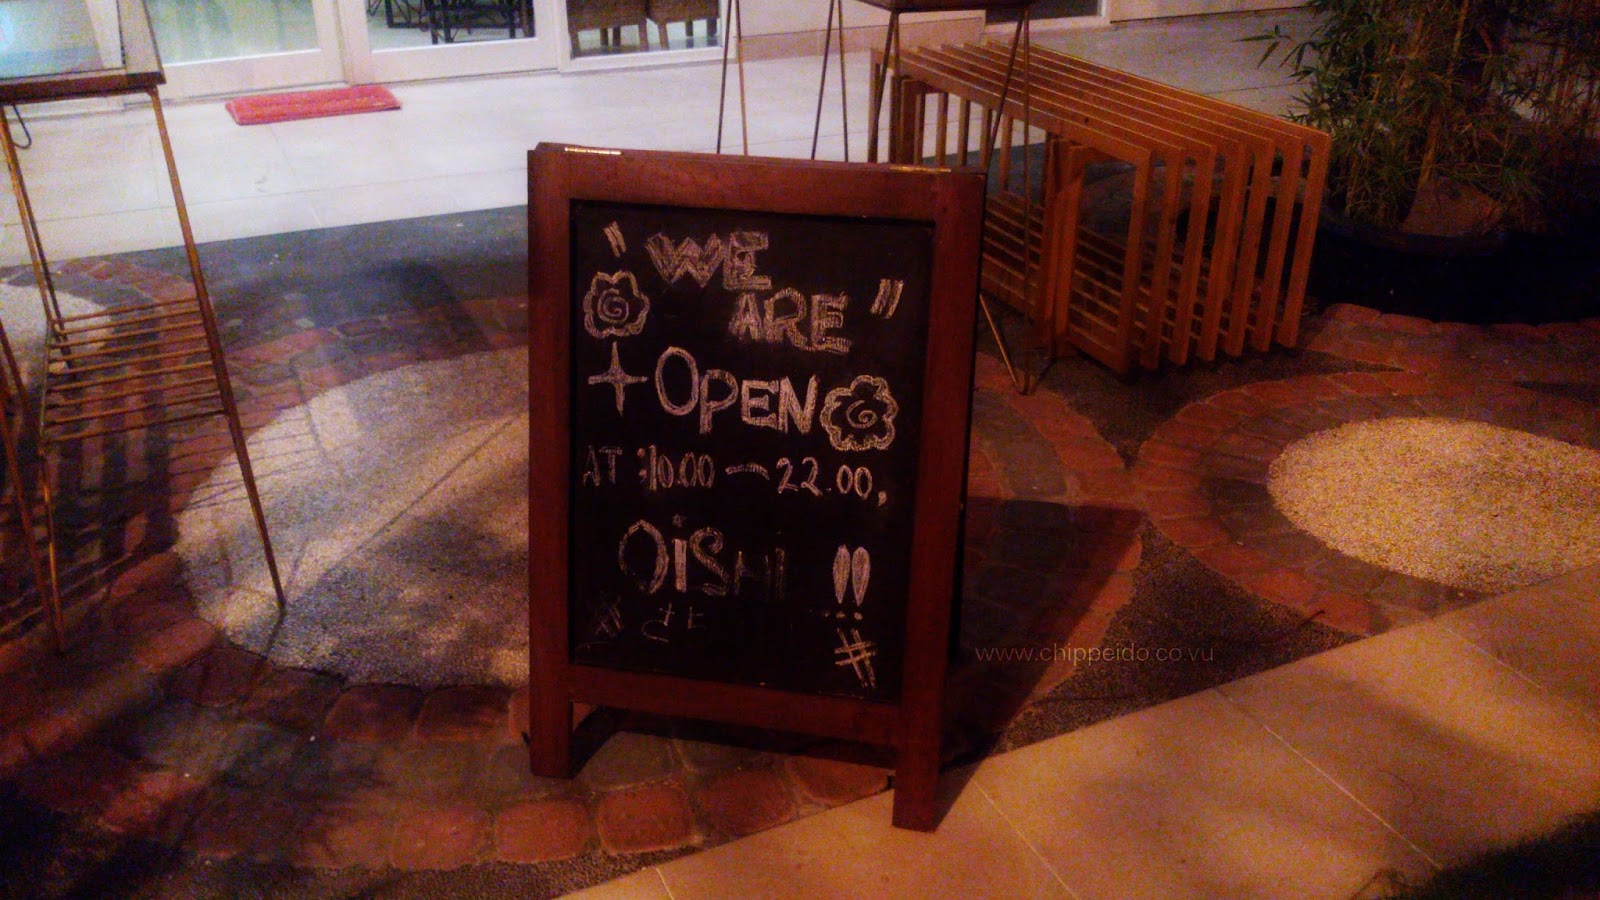 "WE
ARE"
+OPEN
AT :10.00 — 22.00,
OiSHI !!
#
www.chippeido.co.vu